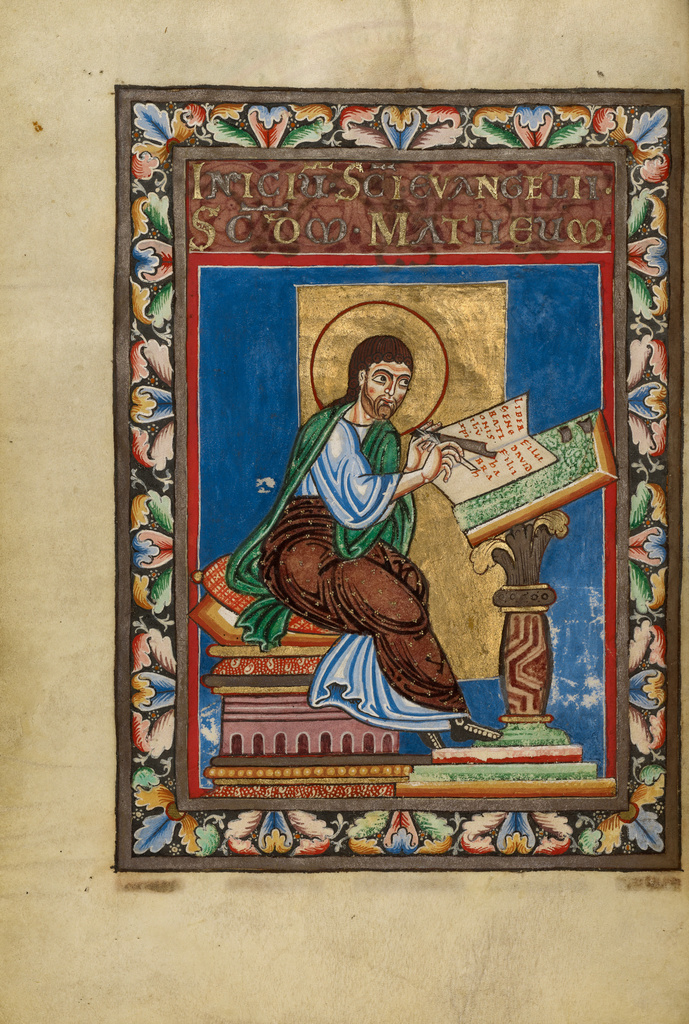 INICIU SCI EVANGELII·
SCDM· MATHEUM
LIBER
GENE
RATI
ONIS
IHV
XPI
FILII
DAVID
FILII
HA
BRA